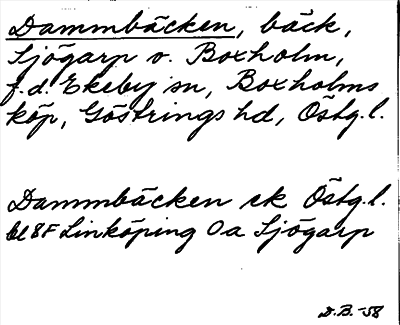 Dammbäcken, bäck,
Sjögarp o. Boxholm,
f.d. Ekeby sn, Boxholms
köp, Göstrings hd, Östg.l.
Dammbäcken ek Östg.l.
bl 8F Linköping Oa Sjögarp
D.B. -58